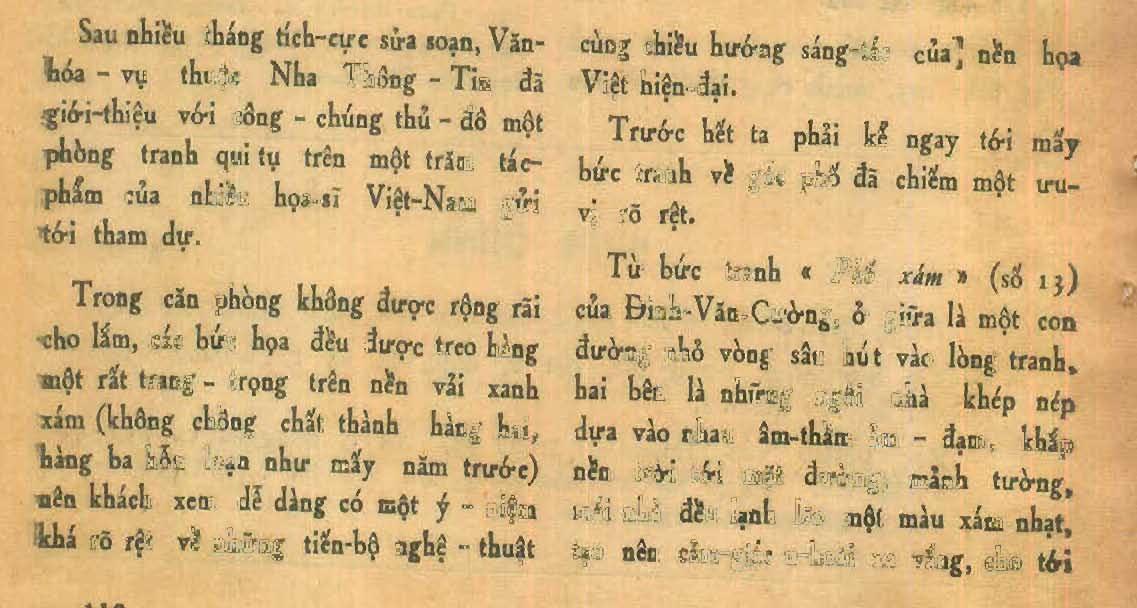 Sau nhiều tháng tích-cực sửa soạn, Văn-
hóa - vụ thuộc Nha Thông - Tin đã
giới-thiệu với công - chúng thủ - đô một
phòng tranh qui tụ trên một trăm tác-
phẩm của nhiều họa-sĩ Việt-Nam gửi
tới tham dự.
Trong căn phòng không được rộng rãi
cho lắm, các bức họa đều được treo hàng
một rất trang - trọng trên nền vải xanh
xám (không chồng chất thành hàng hai,
hàng ba hỗn loạn như mấy năm trước)
nên khách xem dễ dàng có một ý - niệm
khá rõ rệt về những tiến-bộ nghệ - thuật
cùng chiều hướng sáng-tác của nền họa
Việt hiện-đại.
Trước hết ta phải kể ngay tới mấy
bức tranh về góc phố đã chiếm một ưu-
vị rõ rệt.
Từ bức tranh « Phố xám » (số 13)
của Đinh-Văn-Cường, ở giữa là một con
đường nhỏ vòng sâu hút vào lòng tranh,
hai bên là những ngôi nhà khép nép
dựa vào nhau âm-thầm ảm - đạm, khắp
nền trời tới mặt đường, mảnh tường,
mái nhà đều lạnh lẽo một màu xám nhạt,
tạo nên cảm-giác xa vắng, cho tới